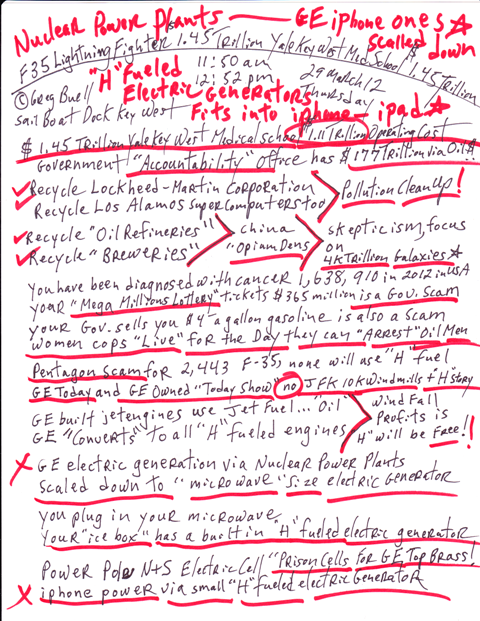 Nuclear Power Plants — GE iphone ones
scalled down
F35 Lightning Fighter 1.45 Trillion Yale Key West Med School $1.45 Trillion
"H" Fueled 11:50 am
Electric Generators 12:52 pm 29 March 12
Thursday
Fits into iphone - ipad
© Greg Buell
Sail Boat Dock Key West
$1.45 Trillion Yale Key West Medical School $1.11 Trillion Operating Cost
Government "Accountability" Office has $177 Trillion via Oil $
Recycle Lockheed-Martin Corporation
Recycle Los Alamos Super Computers too
Pollution Clean Up!
Recycle "Oil Refineries"
Recycle "Breweries"
China
"Opium Dens
skepticism, focus
on
4K Trillion Galaxies
You have been diagnosed with cancer 1,638,910 in 2012 in USA
your "Mega Millions Lottery" tickets $365 million is a Gov. Scam
your Gov. sells you $4 a gallon gasoline is also a Scam
Women cops "Live" for the Day they can "Arrest" Oil Men
Pentagon Scam for 2,443 F-35, none will use "H" fuel
GE Today and GE Owned "Today Show" no JFK 10K Windmills + "H" story
GE built jetengines use Jet Fuel... "Oil"
GE "Converts" to all "H" fueled engines
Wind Fall
Profits is
"H" will be Free!!
GE electric generation via Nuclear Power Plants
Scaled down to "microwave" Size electric Generator
you plug in your microwave
Your "ice box" has a built in "H" fueled electric generator
Power Pole N+S Electric Cell "Prison Cells for GE Top Brass!
iphone power via small "H" fueled electric Generator